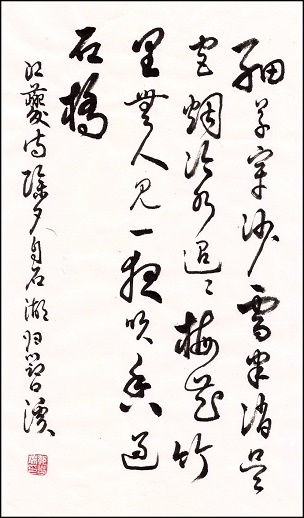 細草穿沙雪半消吴
宫烟冷水迢〻梅花竹
里無人见一夜吹香过
石橋
姜夔诗除夕自石湖归苕溪